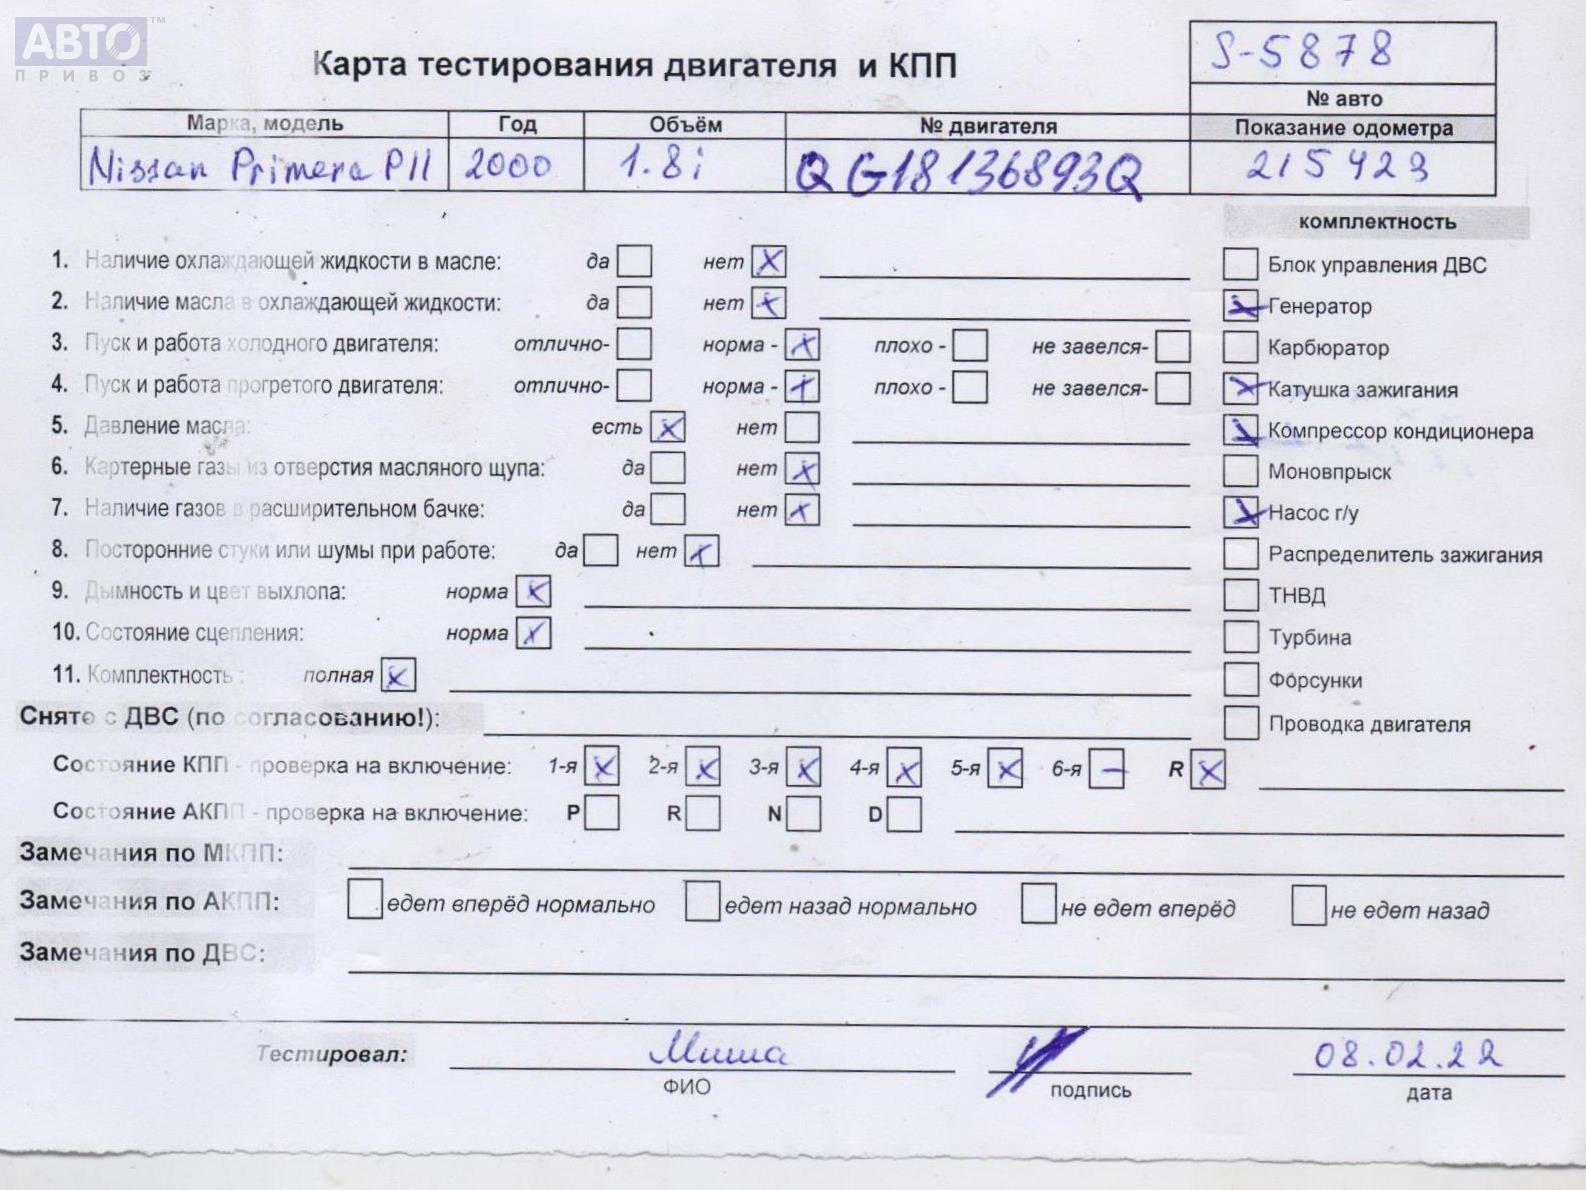 АВТО™
ПРИВОЗ
Карта тестирования двигателя и КПП
S-5878
№ авто
Марка, модель Год Объём № двигателя Показание одометра
Nissan Primera P11 2000 1.8i QG18136893Q 215423
комплектность
1. Наличие охлаждающей жидкости в масле: да нет X
Блок управления ДВС
2. Наличие масла в охлаждающей жидкости: да нет X
X Генератор
3. Пуск и работа холодного двигателя: отлично- норма - X плохо - не завелся-
Карбюратор
4. Пуск и работа прогретого двигателя: отлично- норма - X плохо - не завелся-
X Катушка зажигания
5. Давление масла: есть X нет
X Компрессор кондиционера
6. Картерные газы из отверстия масляного щупа: да нет X
Моновпрыск
7. Наличие газов в расширительном бачке: да нет X
X Насос г/у
8. Посторонние стуки или шумы при работе: да нет X
Распределитель зажигания
9. Дымность и цвет выхлопа: норма X
ТНВД
10. Состояние сцепления: норма X
Турбина
11. Комплектность : полная X
Форсунки
Снято с ДВС (по согласованию!):
Проводка двигателя
Состояние КПП - проверка на включение: 1-я X 2-я X 3-я X 4-я X 5-я X 6-я — R X
Состояние АКПП - проверка на включение: P R N D
Замечания по МКПП:
Замечания по АКПП: едет вперёд нормально едет назад нормально не едет вперёд не едет назад
Замечания по ДВС:
Тестировал: Миша 08.02.22
ФИО подпись дата